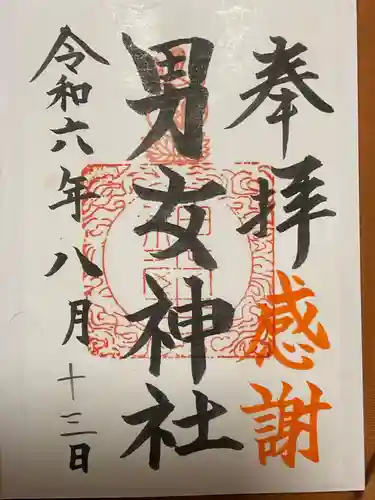 奉拝 感謝
男女神社
令和六年八月十三日